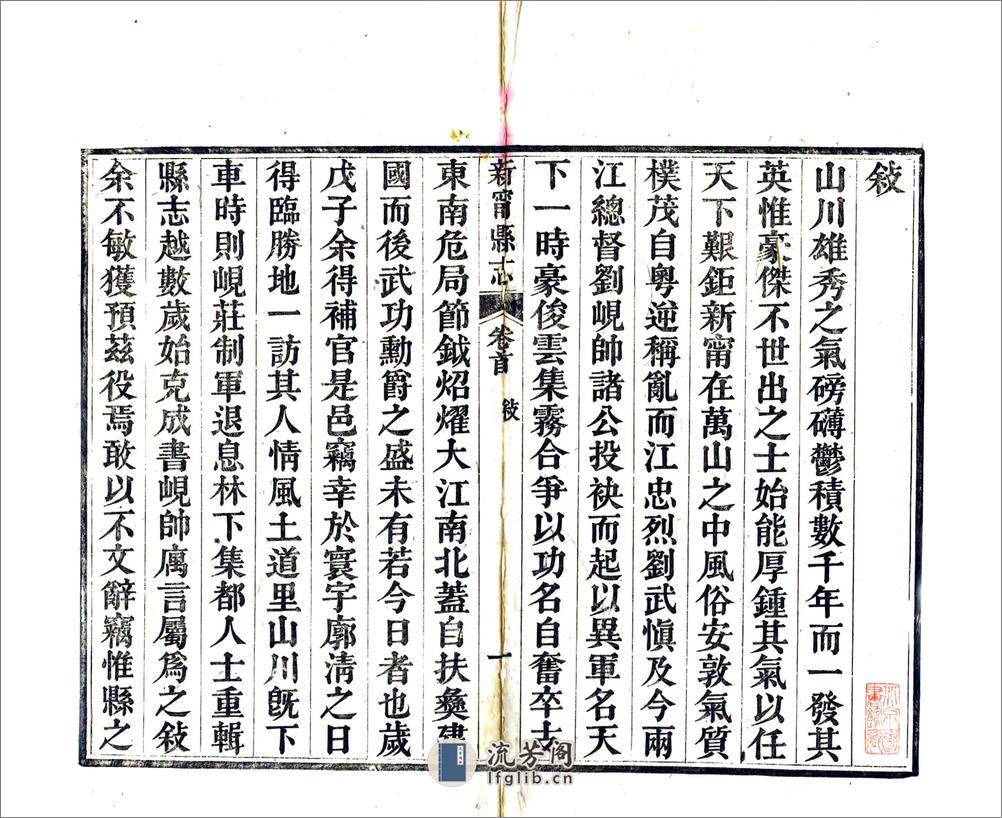 敍
山川雄秀之氣磅礴鬱積數千年而一發其
英惟豪傑不世出之士始能厚鍾其氣以任
天下艱鉅新甯在萬山之中風俗安敦氣質
樸茂自粵逆稱亂而江忠烈劉武慎及今兩
江總督劉峴帥諸公投袂而起以異軍名天
下一時豪俊雲集霧合爭以功名自奮卒
新甯縣志 卷首 敍 一
東南危局節鉞炤燿大江南北蓋自扶彝建
國而後武功勳爵之盛未有若今日者也歲
戊子余得補官是邑竊幸於寰宇廓清之日
得臨勝地一訪其人情風土道里山川旣下
車時則峴莊制軍退息林下集都人士重輯
縣志越數歲始克成書峴帥厲言屬爲之敍
余不敏獲預茲役焉敢以不文辭竊惟縣之
流芳阁
lfglib.cn